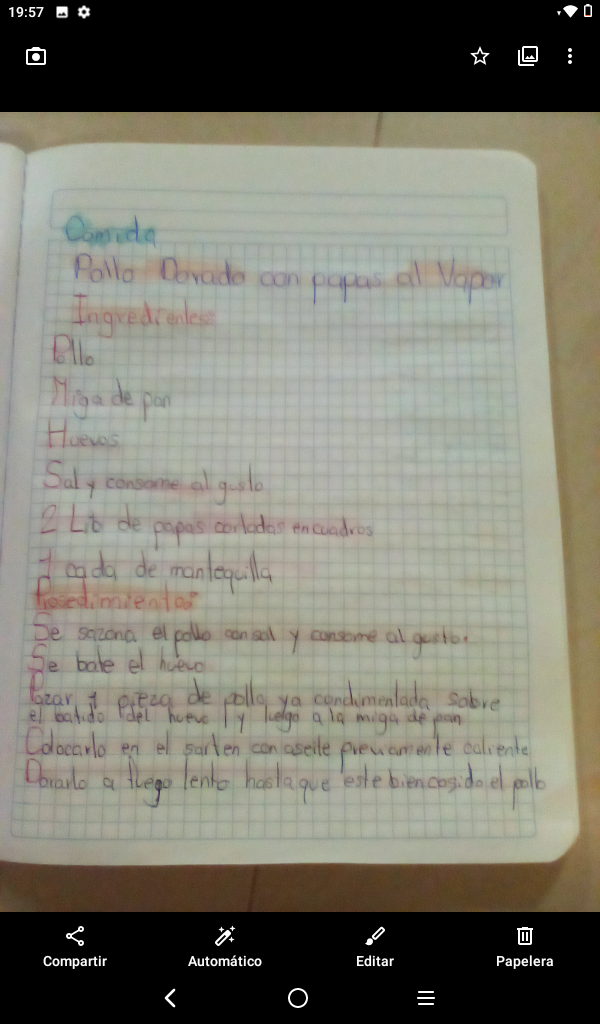 19:57
Comida
Pollo Dorado con papas al Vapor
Ingredientes:
Pollo
Miga de pan
Huevos
Sal y consome al gusto
2 Lib de papas cortadas en cuadros
1 cada de mantequilla
Prosedimientos:
Se sazona el pollo con sal y consome al gusto.
Se bate el huevo
Pazar 1 pieza de pollo ya condimentada sobre
el batido del huevo y luego a la miga de pan
Colocarlo en el sarten con aseite previamente caliente
Dorarlo a fuego lento hasta que este bien cosido el pollo
Compartir
Automático
Editar
Papelera